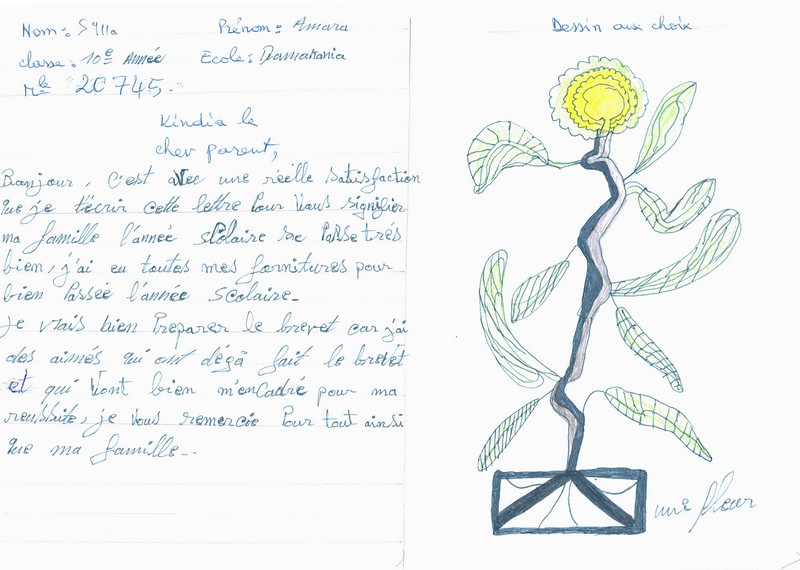 Nom: Sylla Prénom: Amara
classe: 10e Année Ecole: Damakania
Mle 20745.-
Kindia le
cher parent,
Bonjour, C'est avec une réelle Satisfaction
que je t'écrir cette lettre Pour Vous signifier
ma famille l'année scolaire se Passe trés
bien, j'ai eu toutes mes fornitures pour
bien Passée l'année scolaire_
je vrais bien Preparer le brevet car j'ai
des aimés qui ont dégà fait le brevet
et qui Vont bien m'enCadré pour ma
reussite, je Vous remercie Pour tout ainsi
que ma famille_..
Dessin aux choix
une fleur